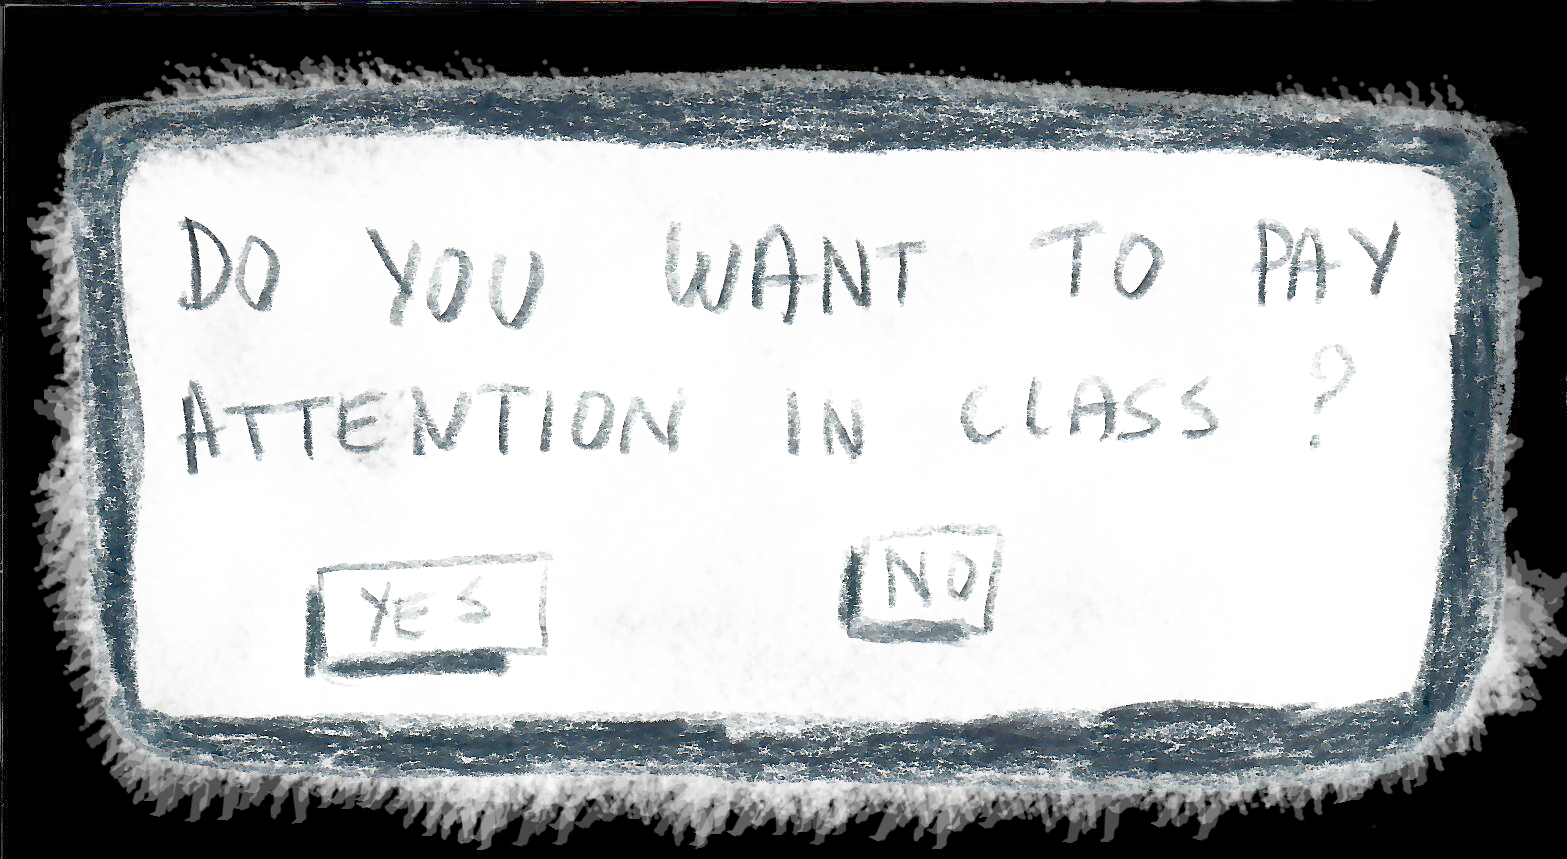 DO YOU WANT TO PAY
ATTENTION IN CLASS ?
YES NO